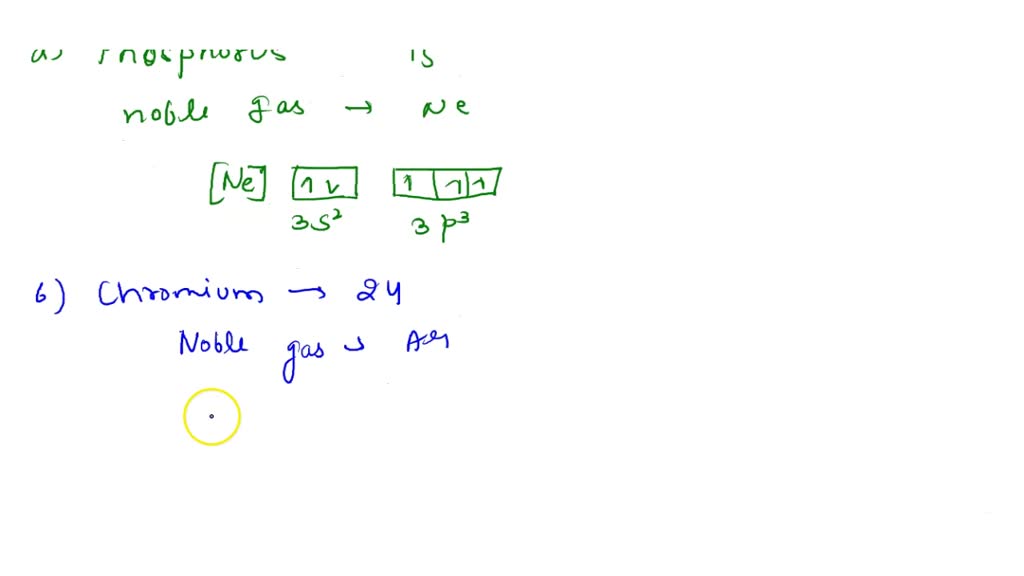 a) Phosphorus 15
noble gas → Ne
[Ne] 1 1 1 1
3s² 3p³
b) Chromium → 24
Noble gas → Ar